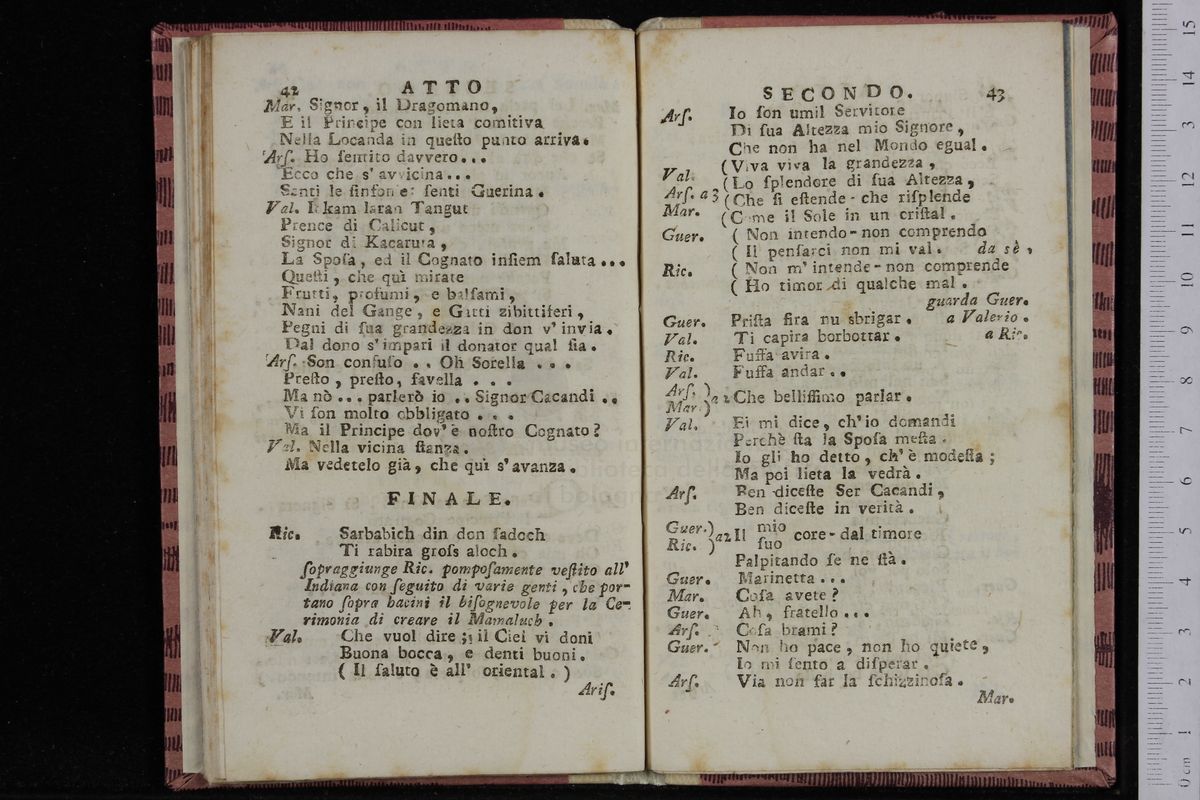 42 ATTO
Mar. Signor, il Dragomano,
E il Principe con lieta comitiva
Nella Locanda in queſto punto arriva.
Arſ. Ho ſentito davvero...
Ecco che s'avvicina...
Senti le ſinfonie: ſenti Guerina.
Val. Ikam laran Tangut
Prence di Calicut,
Signor di Kacaruta,
La Spoſa, ed il Cognato inſiem ſaluta...
Queſti, che quì mirate
Frutti, profumi, e balſami,
Nani del Gange, e Gatti zibittiferi,
Pegni di ſua grandezza in don v'invia.
Dal dono s'impari il donator qual ſia.
Arſ. Son confuſo .. Oh Sorella ...
Preſto, preſto, favella ...
Ma nò ... parlerò io .. Signor Cacandi ..
Vi ſon molto obbligato ...
Ma il Principe dov'è noſtro Cognato?
Val. Nella vicina ſtanza.
Ma vedetelo già, che quì s'avanza.
FINALE.
Ric. Sarbabich din don ſadoch
Ti rabira groſs aloch.
ſopraggiunge Ric. pompoſamente veſtito all'
Indiana con ſeguito di varie genti, che por-
tano ſopra bacini il biſognevole per la Ce-
rimonia di creare il Mamaluch.
Val. Che vuol dire; il Ciel vi doni
Buona bocca, e denti buoni.
( Il ſaluto è all' oriental. )
Ariſ.
SECONDO. 43
Arſ. Io ſon umil Servitore
Di ſua Altezza mio Signore,
Che non ha nel Mondo egual.
Val. (Viva viva la grandezza,
(Lo ſplendore di ſua Altezza,
Arſ. a 3 (Che ſi eſtende - che riſplende
Mar. (Come il Sole in un criſtal.
Guer. ( Non intendo - non comprendo
( Il penſarci non mi val. da sè,
Ric. ( Non m'intende - non comprende
( Ho timor di qualche mal.
guarda Guer.
Guer. Priſta ſira nu sbrigar. a Valerio.
Val. Ti capira borbottar. a Ric.
Ric. Fuſſa avira.
Val. Fuſſa andar..
Arſ. )
Mar. ) a 2 Che belliſſimo parlar.
Val. Ei mi dice, ch'io domandi
Perchè ſta la Spoſa meſta.
Io gli ho detto, ch'è modeſta;
Ma poi lieta la vedrà.
Arſ. Ben diceſte Ser Cacandi,
Ben diceſte in verità.
Guer. ) mio
Ric. ) a 2 Il ſuo core - dal timore
Palpitando ſe ne ſtà.
Guer. Marinetta...
Mar. Coſa avete?
Guer. Ah, fratello...
Arſ. Coſa brami?
Guer. Non ho pace, non ho quiete,
Io mi ſento a diſperar.
Arſ. Via non far la ſchizzinoſa.
Mar.